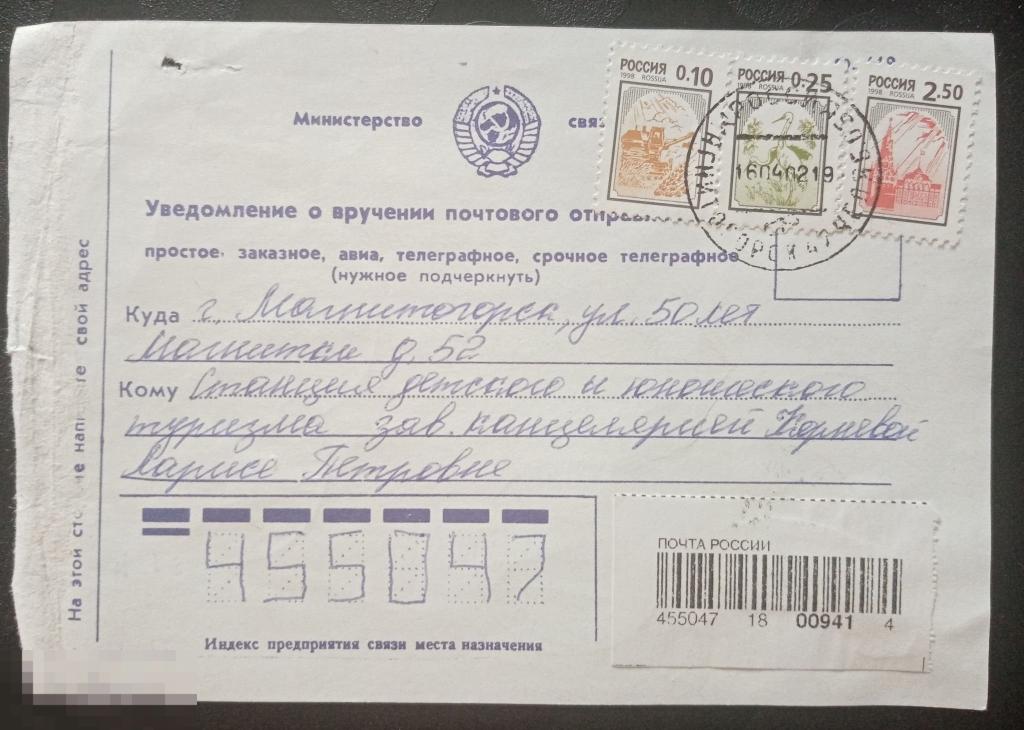 РОССИЯ 0.10
1998 ROSSIJA
РОССИЯ 0.25
1998 ROSSIJA
РОССИЯ 2.50
1998 ROSSIJA
Министерство связ
16040219
Уведомление о вручении почтового отправ
простое, заказное, авиа, телеграфное, срочное телеграфное
(нужное подчеркнуть)
Куда г. Магнитогорск, ул. 50 лет
Магнитки д. 52
Кому Станция детского и юношеского
туризма зав. канцелярией Корневой
Ларисе Петровне
455047
Индекс предприятия связи места назначения
ПОЧТА РОССИИ
455047 18 00941 4
На этой сто не напи те свой адрес